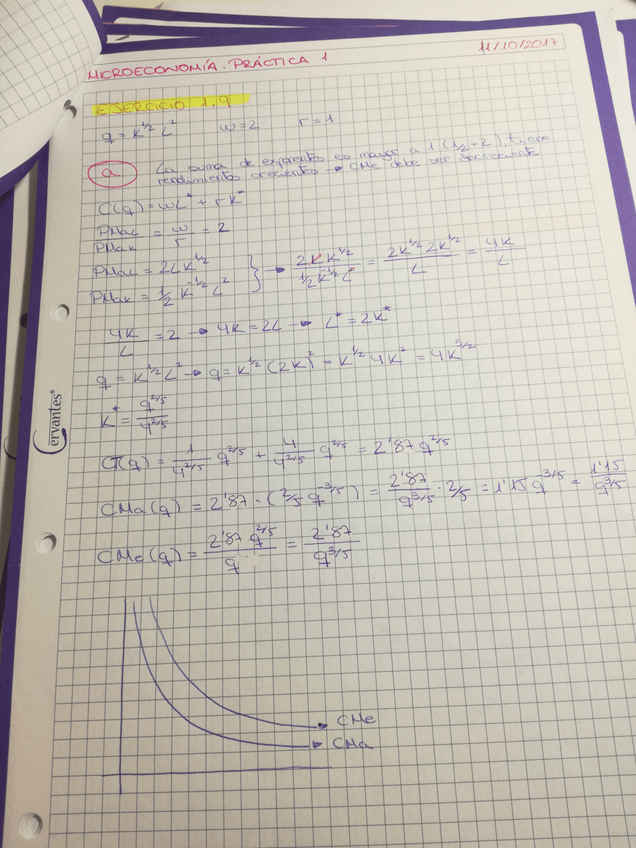 MICROECONOMÍA. PRÁCTICA 1
11/10/2017
EJERCICIO 1.9
q = K^1/2 L^2 w=2 r=1
a La suma de exponentes es mayor a 1 (1/2+2), tiene
rendimientos crecientes → CMe debe ser decreciente
C(q) = wL* + rK*
PMaL/PMaK = w/r = 2
PMaL = 2LK^1/2
PMaK = 1/2 K^-1/2 L^2 } → 2LK^1/2 / 1/2 K^-1/2 L^2 = 2K^1/2 2K^1/2 / L = 4K/L
4K/L = 2 → 4K = 2L → L* = 2K*
q = K^1/2 L^2 → q = K^1/2 (2K)^2 = K^1/2 4K^2 = 4K^5/2
K* = q^2/5 / 4^2/5
CT(q) = 1/4^2/5 q^2/5 + 4/4^2/5 q^2/5 = 2'87 q^2/5
CMa(q) = 2'87 · (2/5 q^-3/5) = 2'87/q^3/5 · 2/5 = 1'15 q^3/5 = 1'15/q^3/5
CMe(q) = 2'87 q^2/5 / q = 2'87/q^3/5
CMe
CMa
Cervantes®